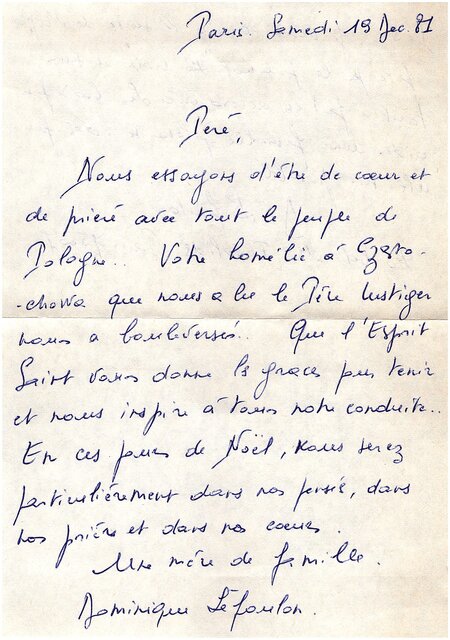 Paris. Samedi 19 Dec. 81
Père,
Nous essayons d'être de cœur et
de prière avec tout le peuple de
Pologne.. Votre homélie à Czesto-
-chowa que nous a lue le Père Lustiger
nous a bouleversés.. Que l'Esprit
Saint vous donne les graces pour tenir
et nous inspire à tous notre conduite..
En ces jours de Noël, vous serez
particulièrement dans nos pensées, dans
nos prière et dans nos coeurs.
Une mère de famille.
Dominique